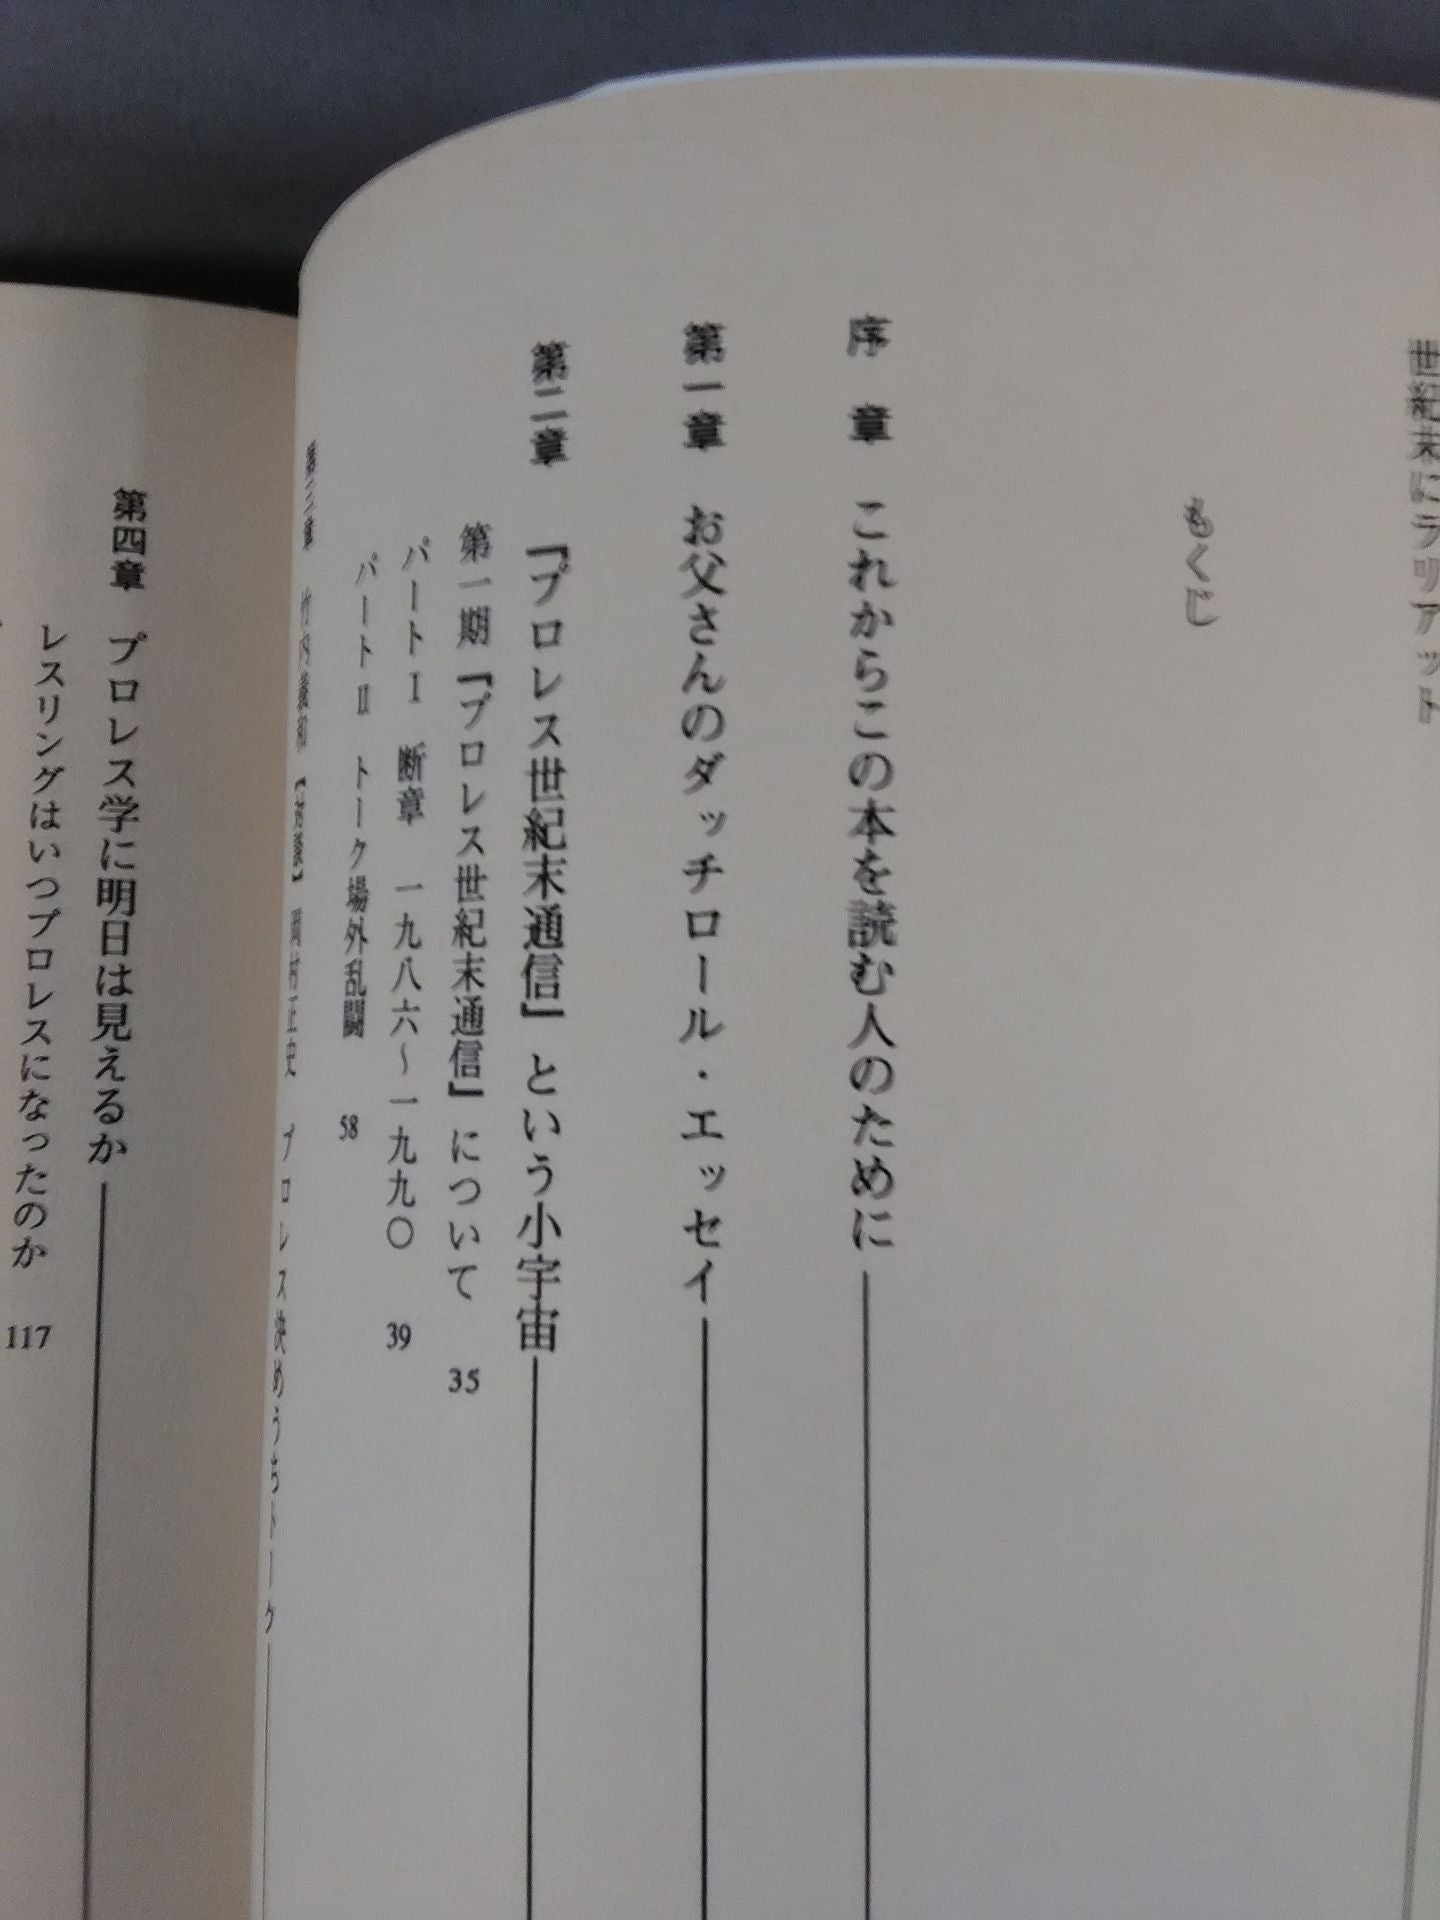 世紀末にラリアット
もくじ
序章 これからこの本を読む人のために
第一章 お父さんのダッチロール・エッセイ
第二章 『プロレス世紀末通信』という小宇宙
第一期『プロレス世紀末通信』について 35
パートⅠ 断章 一九八六〜一九九〇 39
パートⅡ トーク場外乱闘 58
第三章 竹内義和【対談】岡村正史 プロレス決めうちトーク
第四章 プロレス学に明日は見えるか
レスリングはいつプロレスになったのか 117